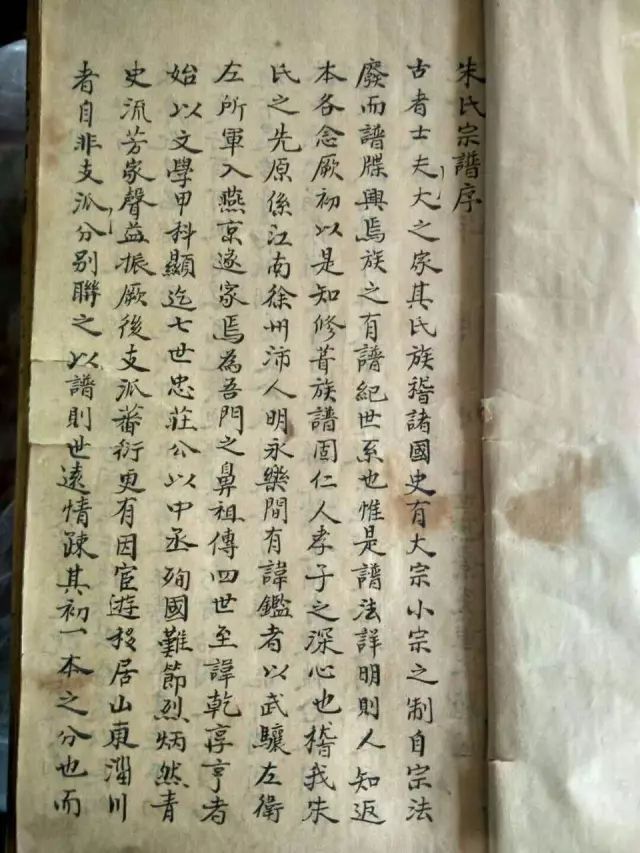 朱氏宗譜序
古者士夫大之家其氏族稽諸國史有大宗小宗之制自宗法
廢而譜牒興焉族之有譜紀世系也惟是譜法詳明則人知返
本各念厥初以是知修葺族譜固仁人孝子之深心也稽我朱
氏之先原係江南徐州沛人明永樂間有諱鑑者以武驤左衛
左所軍入燕京遂家焉為吾門之鼻祖傳四世至諱乾亨者
始以文學甲科顯迄七世忠莊公以中丞殉國難節烈炳然青
史流芳家聲益振厥後支派蕃衍更有因宦遊移居山東淄川
者自非支派分別聯之以譜則世遠情疎其初一本之分也而